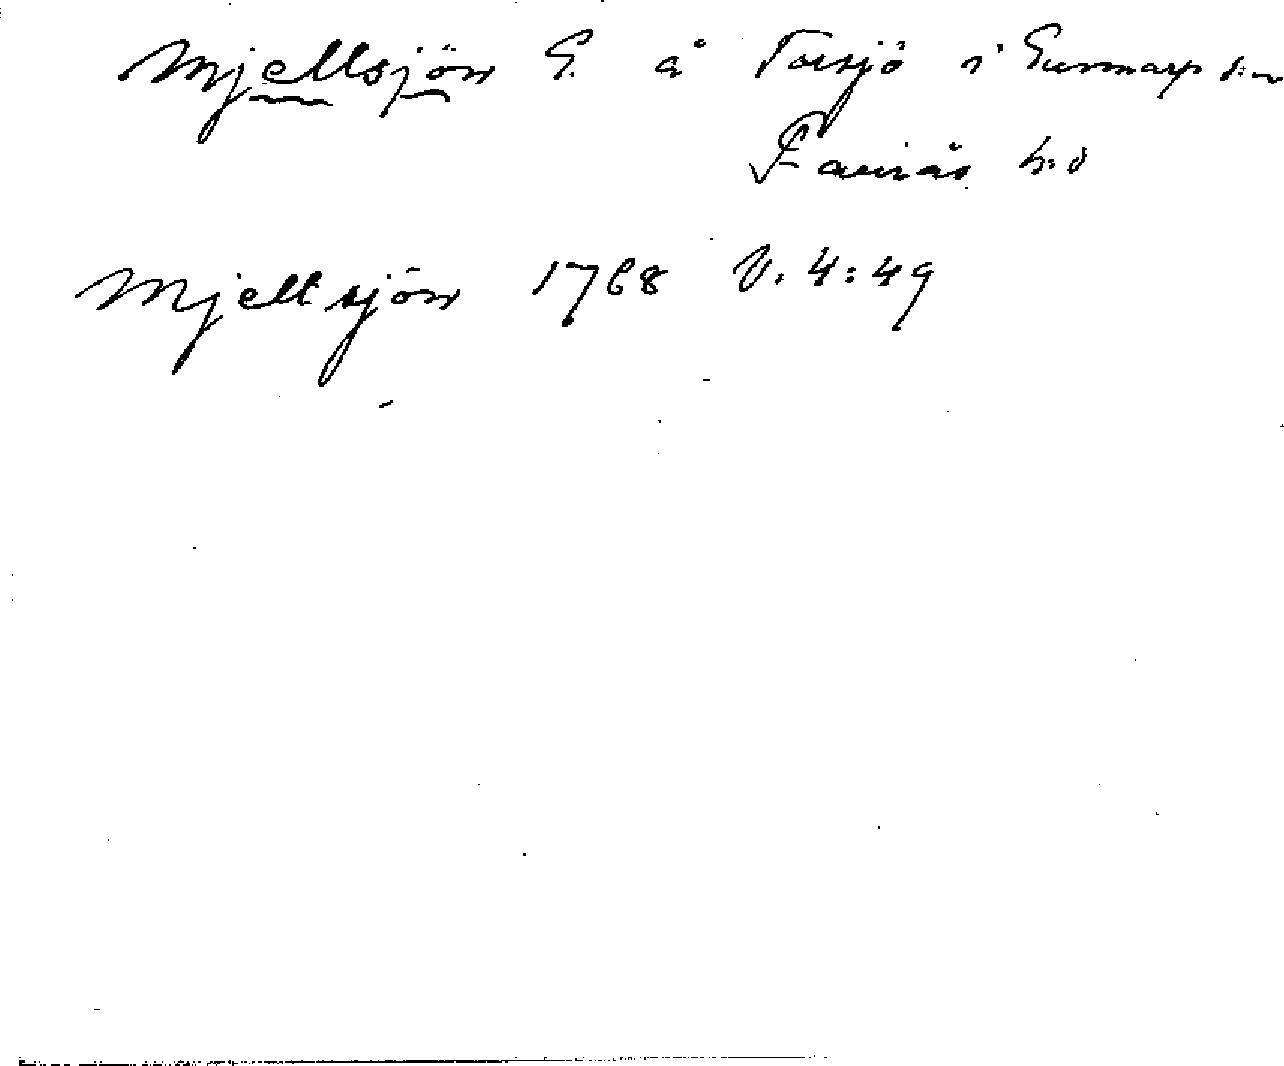 Mjellsjön G. å Torsjö i Gunnarp s:n
Faurås h:d
Mjellsjön 1768 V. 4:49